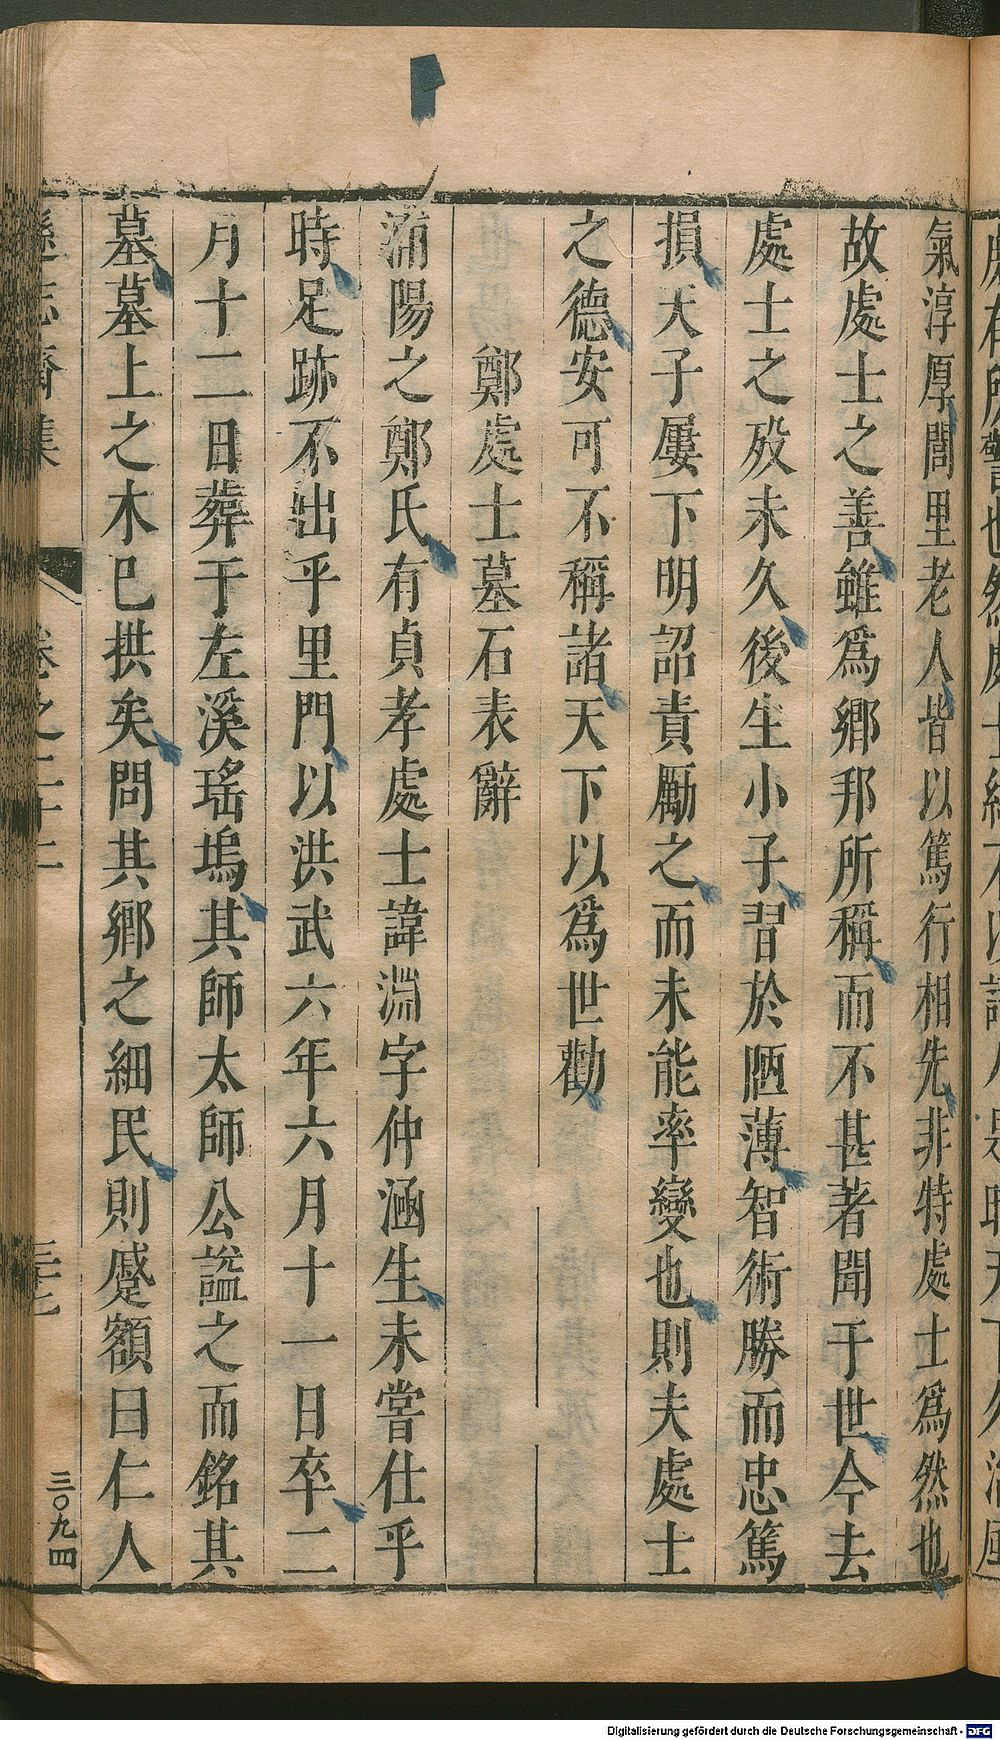 氣淳厚閭里老人皆以篤行相先非特處士爲然也
故處士之善雖爲鄉邦所稱而不甚著聞于世今去
處士之歿未久後生小子習於陋薄智術勝而忠篤
損天子屢下明詔責勵之而未能率變也則夫處士
之德安可不稱諸天下以爲世勸
鄭處士墓石表辭
浦陽之鄭氏有貞孝處士諱淵字仲涵生未嘗仕乎
時足跡不出乎里門以洪武六年六月十一日卒二
月十二日葬于左溪瑤塢其師太師公謚之而銘其
墓墓上之木已拱矣問其鄉之細民則蹙額曰仁人
遜志齋集
卷之二十二
三〇九四
Digitalisierung gefördert durch die Deutsche Forschungsgemeinschaft - DFG